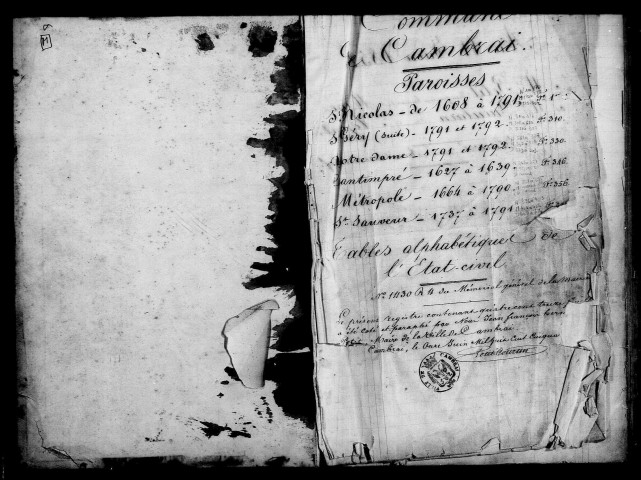 Commune
de Cambrai.
Paroisses
St Nicolas - de 1608 à 1791. f° 1
St Géry (suite) - 1791 et 1792. f° 310.
Notre dame - 1791 et 1792. f° 330.
Cantimpré - 1627 à 1639. f° 346.
Métropole - 1664 à 1790. f° 356.
St Sauveur - 1737 à 1791
Tables alphabétiques de
l'État-civil
N° 1430 R 4 du Mémorial général de la mairie
Le présent registre contenant quatre cent treize
a été coté et paraphé par Nous Jean françois
Maire de la Ville de Cambrai
Cambrai, le Onze Juin Mil